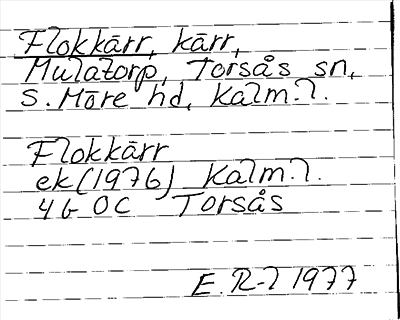 Flokkärr, kärr,
Mulatorp, Torsås sn,
S. Möre hd, Kalm. l.
Flokkärr
ek (1976) Kalm. l.
4 G 0 C Torsås
E. R-l 1977